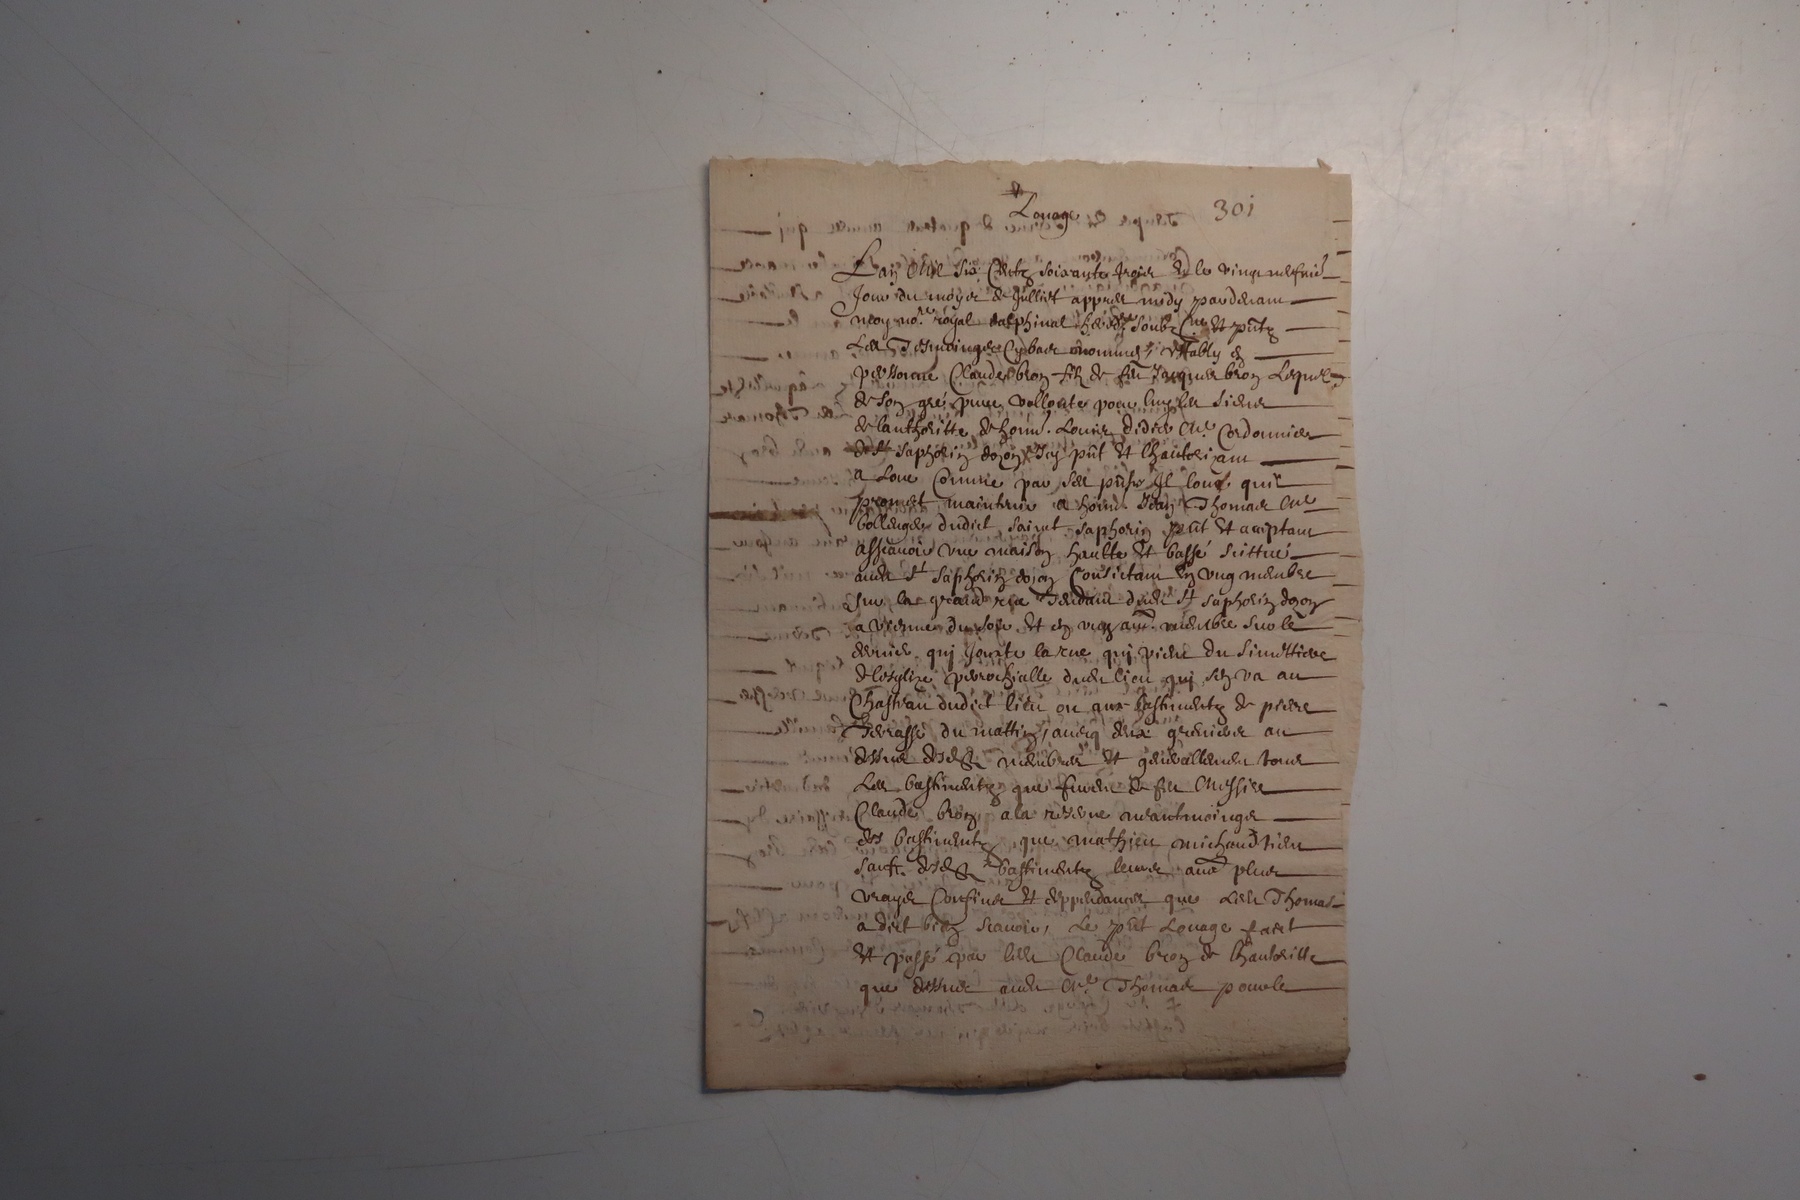 Louage
301
L'an mil six centz soixante trois et le vingt neufvie
Jour du moys de Julliet appres midy pardevant
moy no.re royal dalphinal heredre soubz.ne et pntz
Les Tesmoinges cybas nommes, estably en
personne Claude bron filz de feu Jacques bron Lequel
de son gré pure vollonte pour luy les siens
de lauthoritte de honn. Louis didier me Cordonnier
de St Saphorin dozon Icy pnt et lhautorizant
a Loue Comme par ses pntes Il loue qui
promet maintenir a honn. Jean Thomas me
bollenger dudict saint Saphorin pnt et aceptant
assavoir une maison haulte et basse scittue
aud St Saphorin dozon Consistant en ung membre
sur la grand rue Tendant dud St Saphorin dozon
a Vienne du soir et en ung aut. membre sur le
dernier qui Jouxte la rue qui vient du Simettiere
de lesglize perrochialle dud lieu qui sen va au
Chasteau dudict lieu ou que bastimentz de pierre
Terrasse du mattin, avecq deux greniers au
dessus desdz membres et generallement tous
Les bastimentz que furent de feu Messire
Claude bron, a la reserve neantmoinge
des bastimentz que mathieu michaud tient
sauf desdz bastimentz leurs autz plus
vrayes Confines et deppendances que Led Thomas
a dict bien scavoir, Le pnt Louage faict
et passé par led Claude bron de lhautoritte
que dessus aud me Thomas pour le